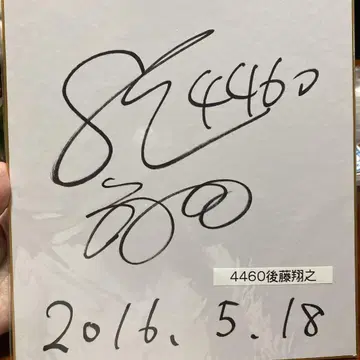 4460
4460後藤翔之
2016.5.18